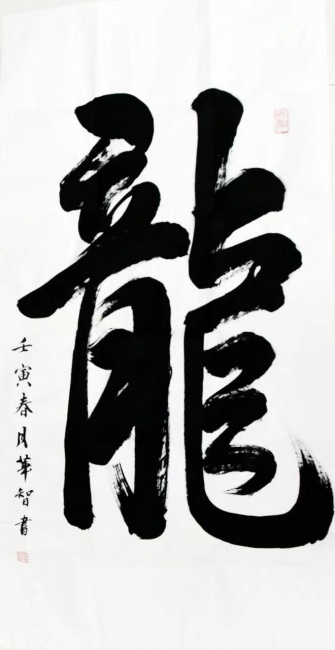 龍
壬寅春月華智書